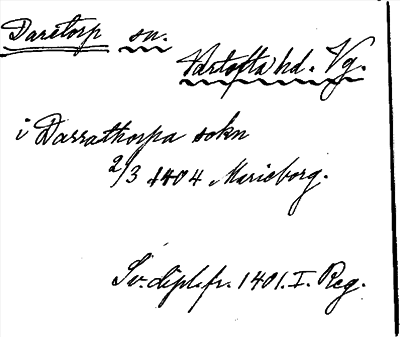 Daretorp sn.
Vartofta hd. Vg.
i Darrathorpa sokn
2/3 1404 Marieborg.
Sv. dipl. fr. 1401. I. Reg.